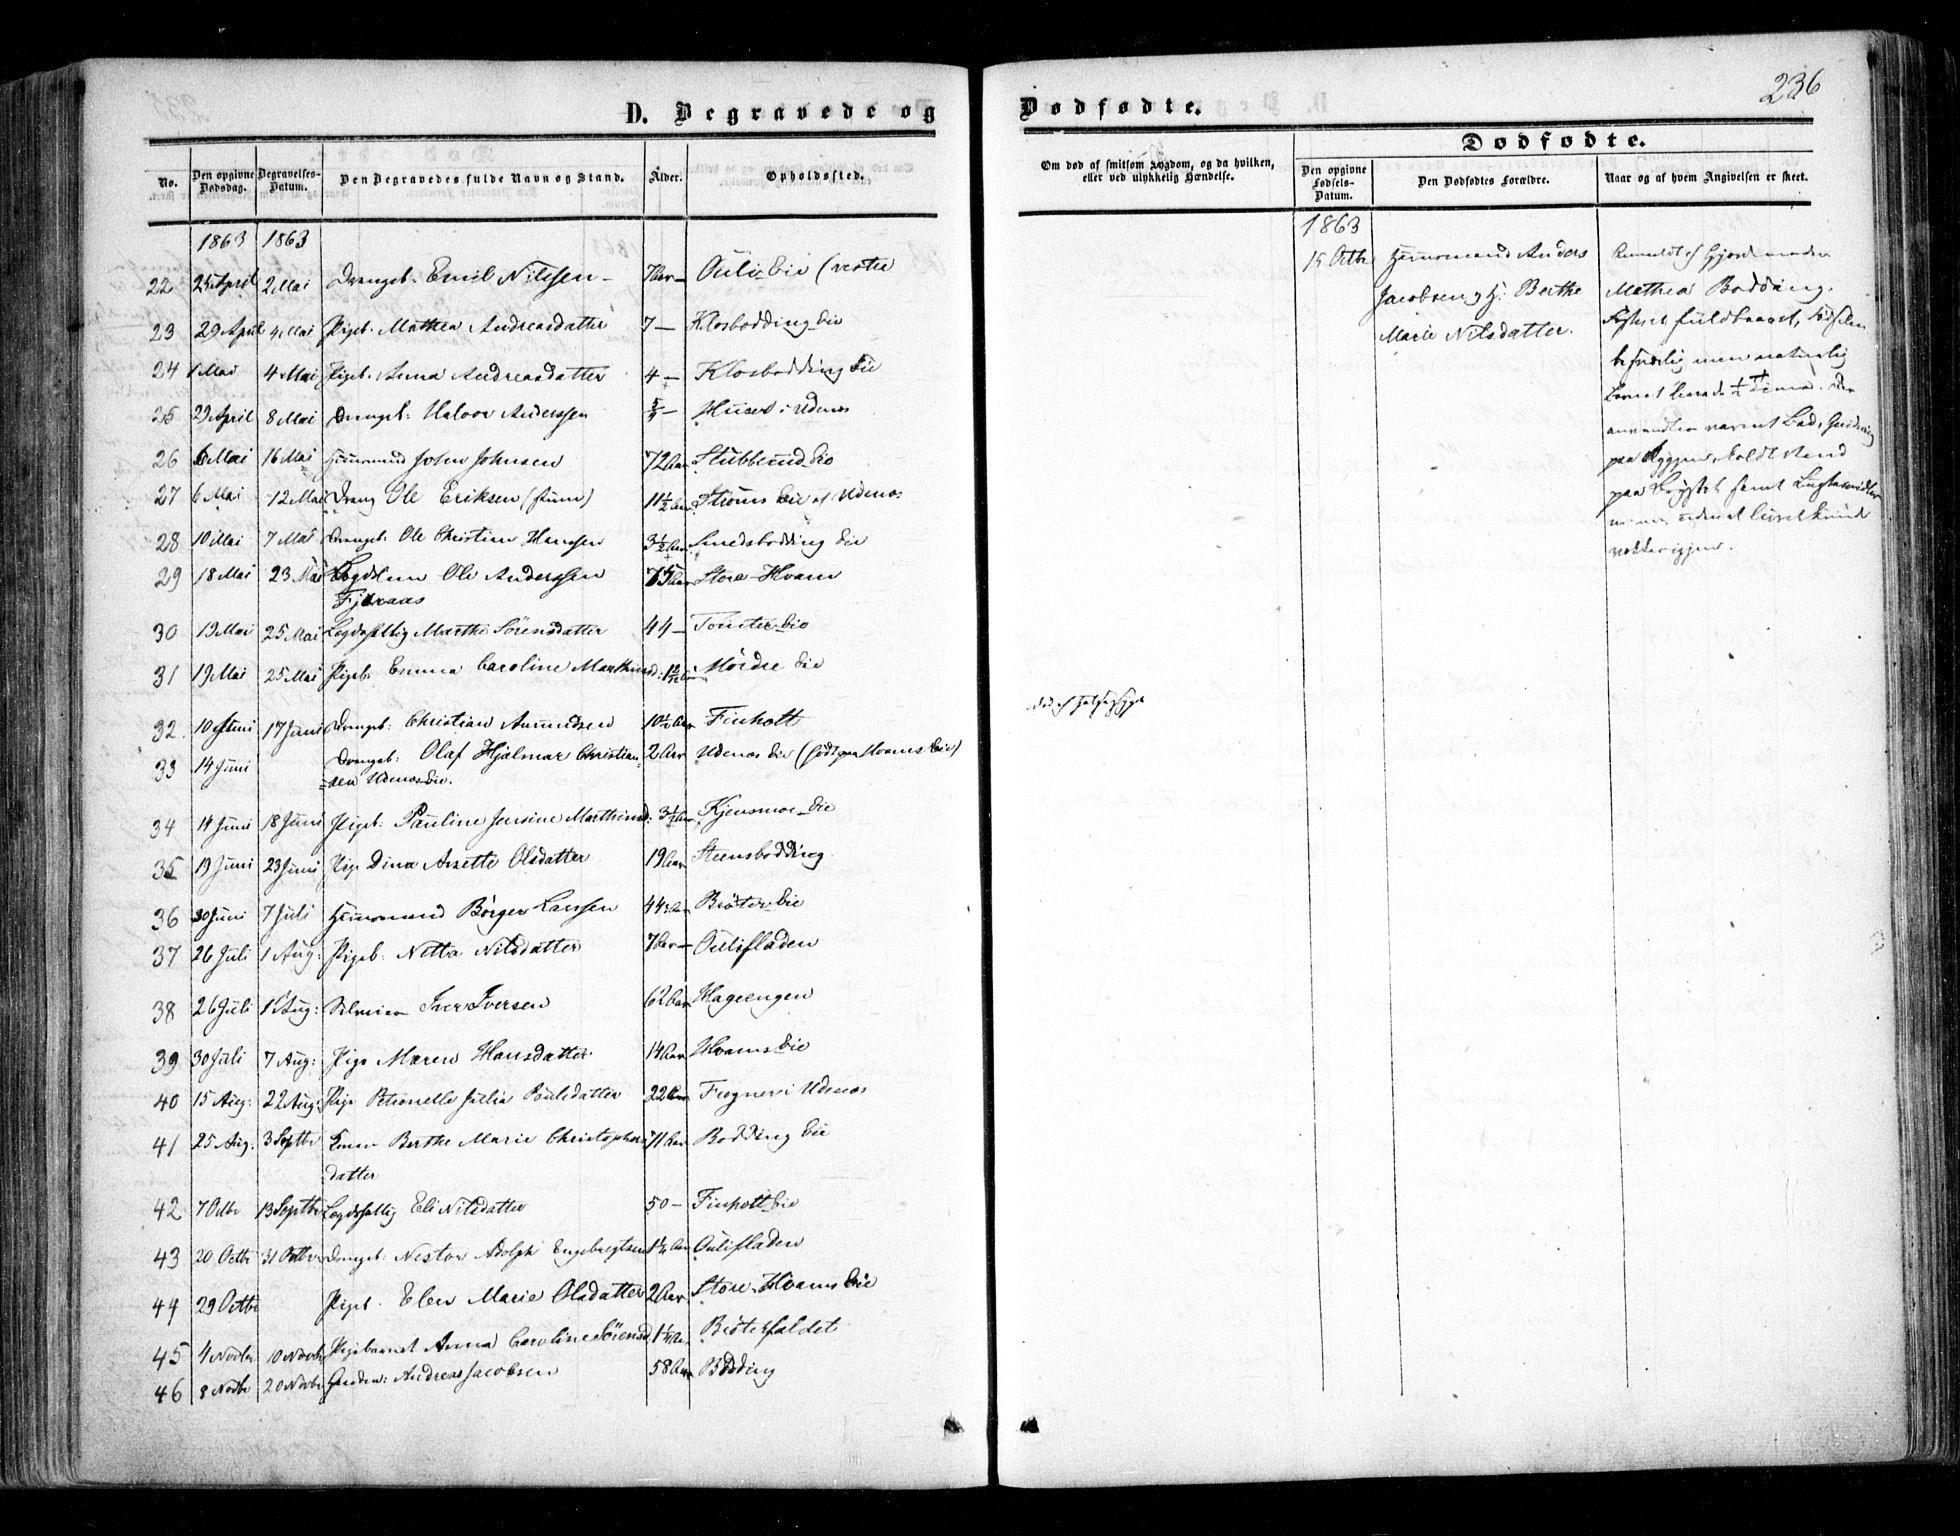 236
D. Begravede og Dødfødte.
Dødfødte.
No.
Den opgivne Dødsdag.
Begravelses-Datum.
Den Begravedes fulde Navn og Stand.
Alder.
Opholdssted.
Om død af smitsom Sygdom, og da hvilken, eller ved ulykkelig Hændelse.
Den opgivne Fødsels-Datum.
Den Dødfødtes Forældre.
Naar og af hvem Angivelsen er skeet.
1863 1863
22 25 April 2 Mai Drengeb. Emil Nilssen 7 Aar Ouli Eie (vestre
23 29 April 4 Mai Pigeb. Mathea Andreasdatter 7 — Klosbodding Eie
24 1 Mai 4 Mai Pigeb. Anna Andreasdatter 4 — Klosbodding Eie
25 29 April 8 Mai Drengeb: Halvor Anderssen Huset i Udenes
26 6 Mai 16 Mai Huusmand John Johnsen 72 Aar Stubberud Eie
27 6 Mai 12 Mai Dreng Ole Eriksen (stum) 11½ Aar Strøms Eie af Udenes
28 10 Mai 7 Mai Drengeb. Ole Christian Hanssen 3½ Aar Smedsbodding Eie
29 18 Mai 23 Mai Ole Anderssen 75 Aar Store-Hvam
30 19 Mai 25 Mai Lægdsfattig Marthe Sörensdatter 44 — Tomter Eie
31 19 Mai 25 Mai Pigeb. Emma Caroline Marthinsd: Mördre Eie
32 10 Juni 17 Juni Drengeb: Christian Amundsen 10½ Aar Finholt
33 14 Juni Drengeb: Olaf Hjalmar Christian= 2 Aar Udenes Eie (født paa Hvams Eie)
=sen Udenes Eie.
34 14 Juni 18 Juni Pigeb. Pauline Jensine Marthinsd: Kjensmoe Eie
35 19 Juni 23 Juni Pige Dina Anette Olsdatter 19 Aar Steensbodding
36 30 Juni 7 Juli Huusmand Börger Larssen 44 Aar Brøter Eie
37 26 Juli 1 Aug: Pigeb. Netta Nilsdatter 7 Aar — Oulifladen
38 26 Juli 1 Aug: Selveier Iver Iversen 62 Aar Hageengen
39 30 Juli 7 Aug: Pige Maren Hansdatter 14 Aar Hvams Eie
40 15 Aug: 22 Aug: Pige Petronelle Julia Paulsdatter 22 Aar Frogner i Udenes
41 25 Aug: 3 Septbr Berthe Marie Christophers 71 Aar Bodding Eie
datter
42 13 Septbr Lægdsfattig Eli Nilsdatter 50 — Finholt Eie
43 20 Octbr 31 Octbr Drengeb: Nestor Adolph Engebregtsen 1¼ Aar Oulifladen
44 29 Octbr Pigeb. Elen Marie Olsdatter 2 Aar Store-Hvams Eie
45 4 Novbr 10 Novbr Pigebarnet Anna Caroline Sörensd. Brøterfaldet
46 8 Novbr 20 Novbr Andreas Jacobsen 58 Aar Bodding
død af Halssyge
1863
15 Octbr Huusmand Anders
Jacobsen og H: Berthe
Marie Nilsdatter.
Anmeldt af Gjordemoder
Mathea Bodding.
Fosteret fuldbaaret, Fødselen
men naturlig
varmt Bad,
paa Ryggen, koldt Vand
paa Brystet samt